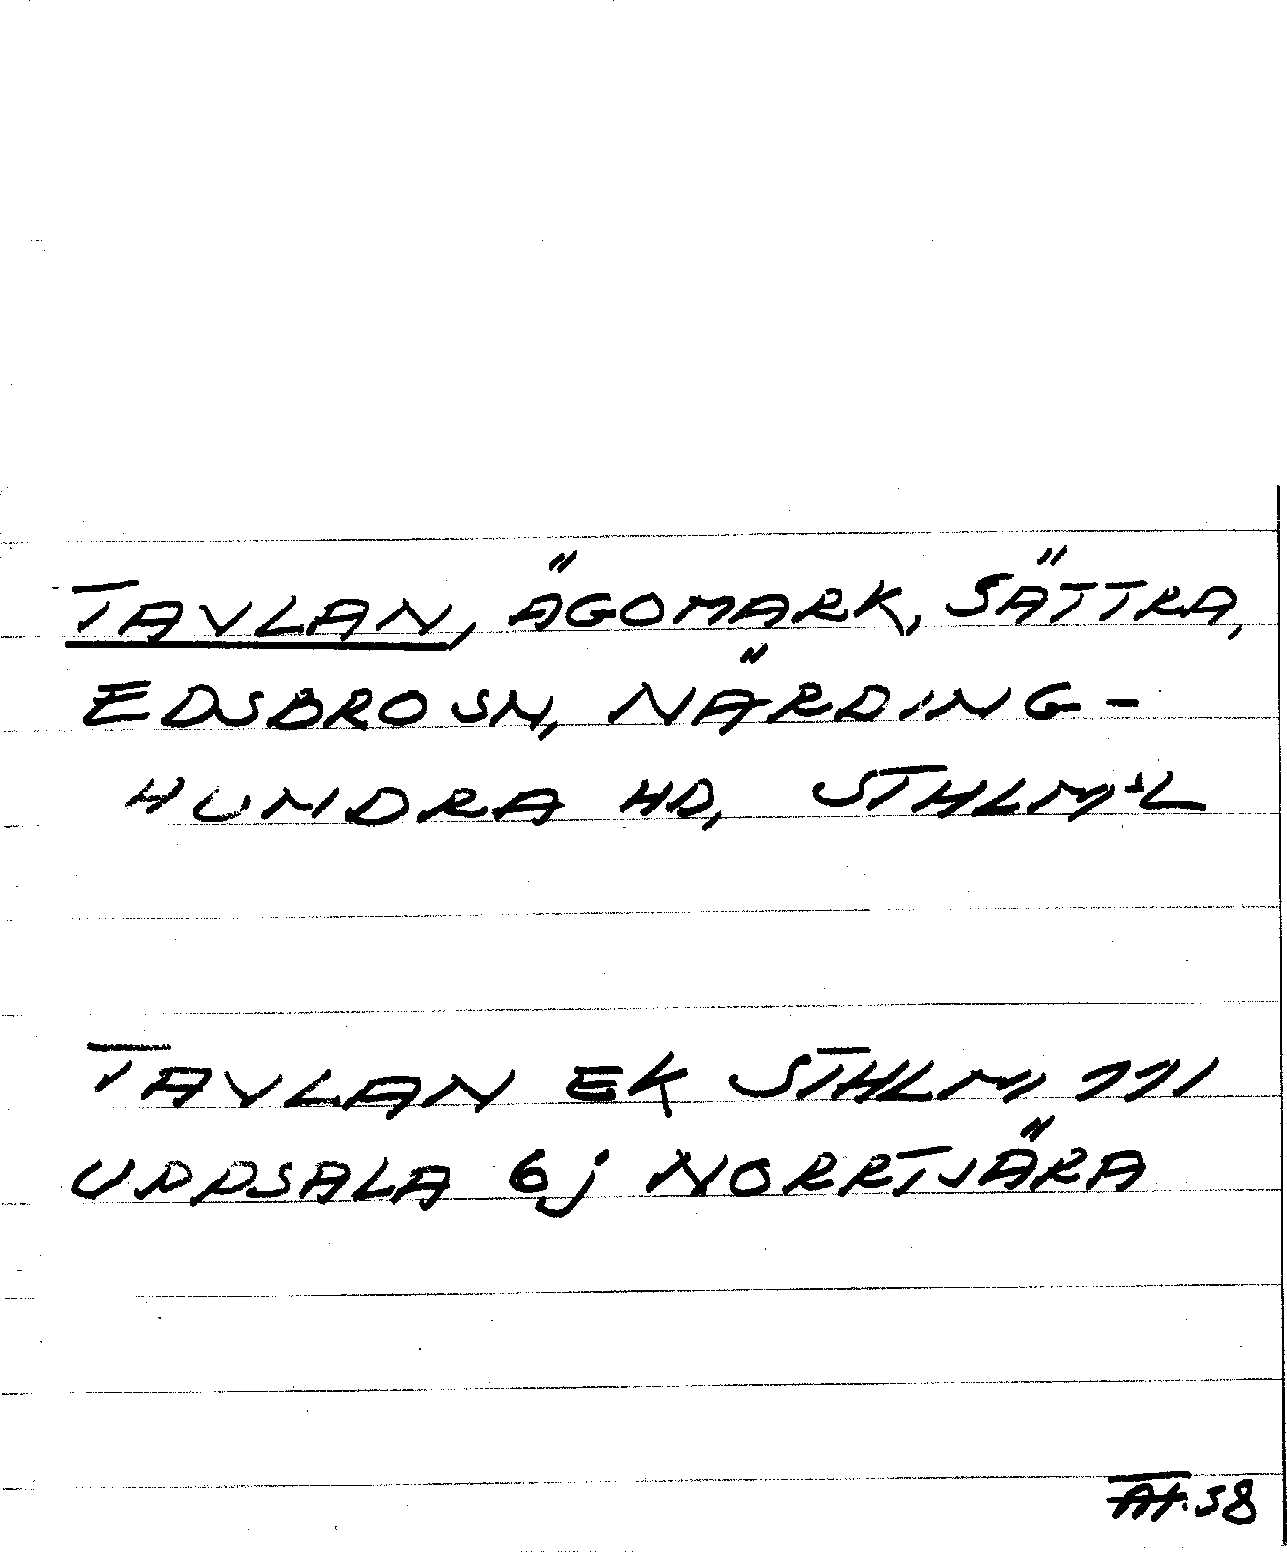 TAVLAN, ÄGOMARK, SÄTTRA,
EDSBRO SN, NÄRDING-
HUNDRA HD, STHLMSL
TAVLAN EK STHLM 111
UPPSALA 6j NORRTJÄRA